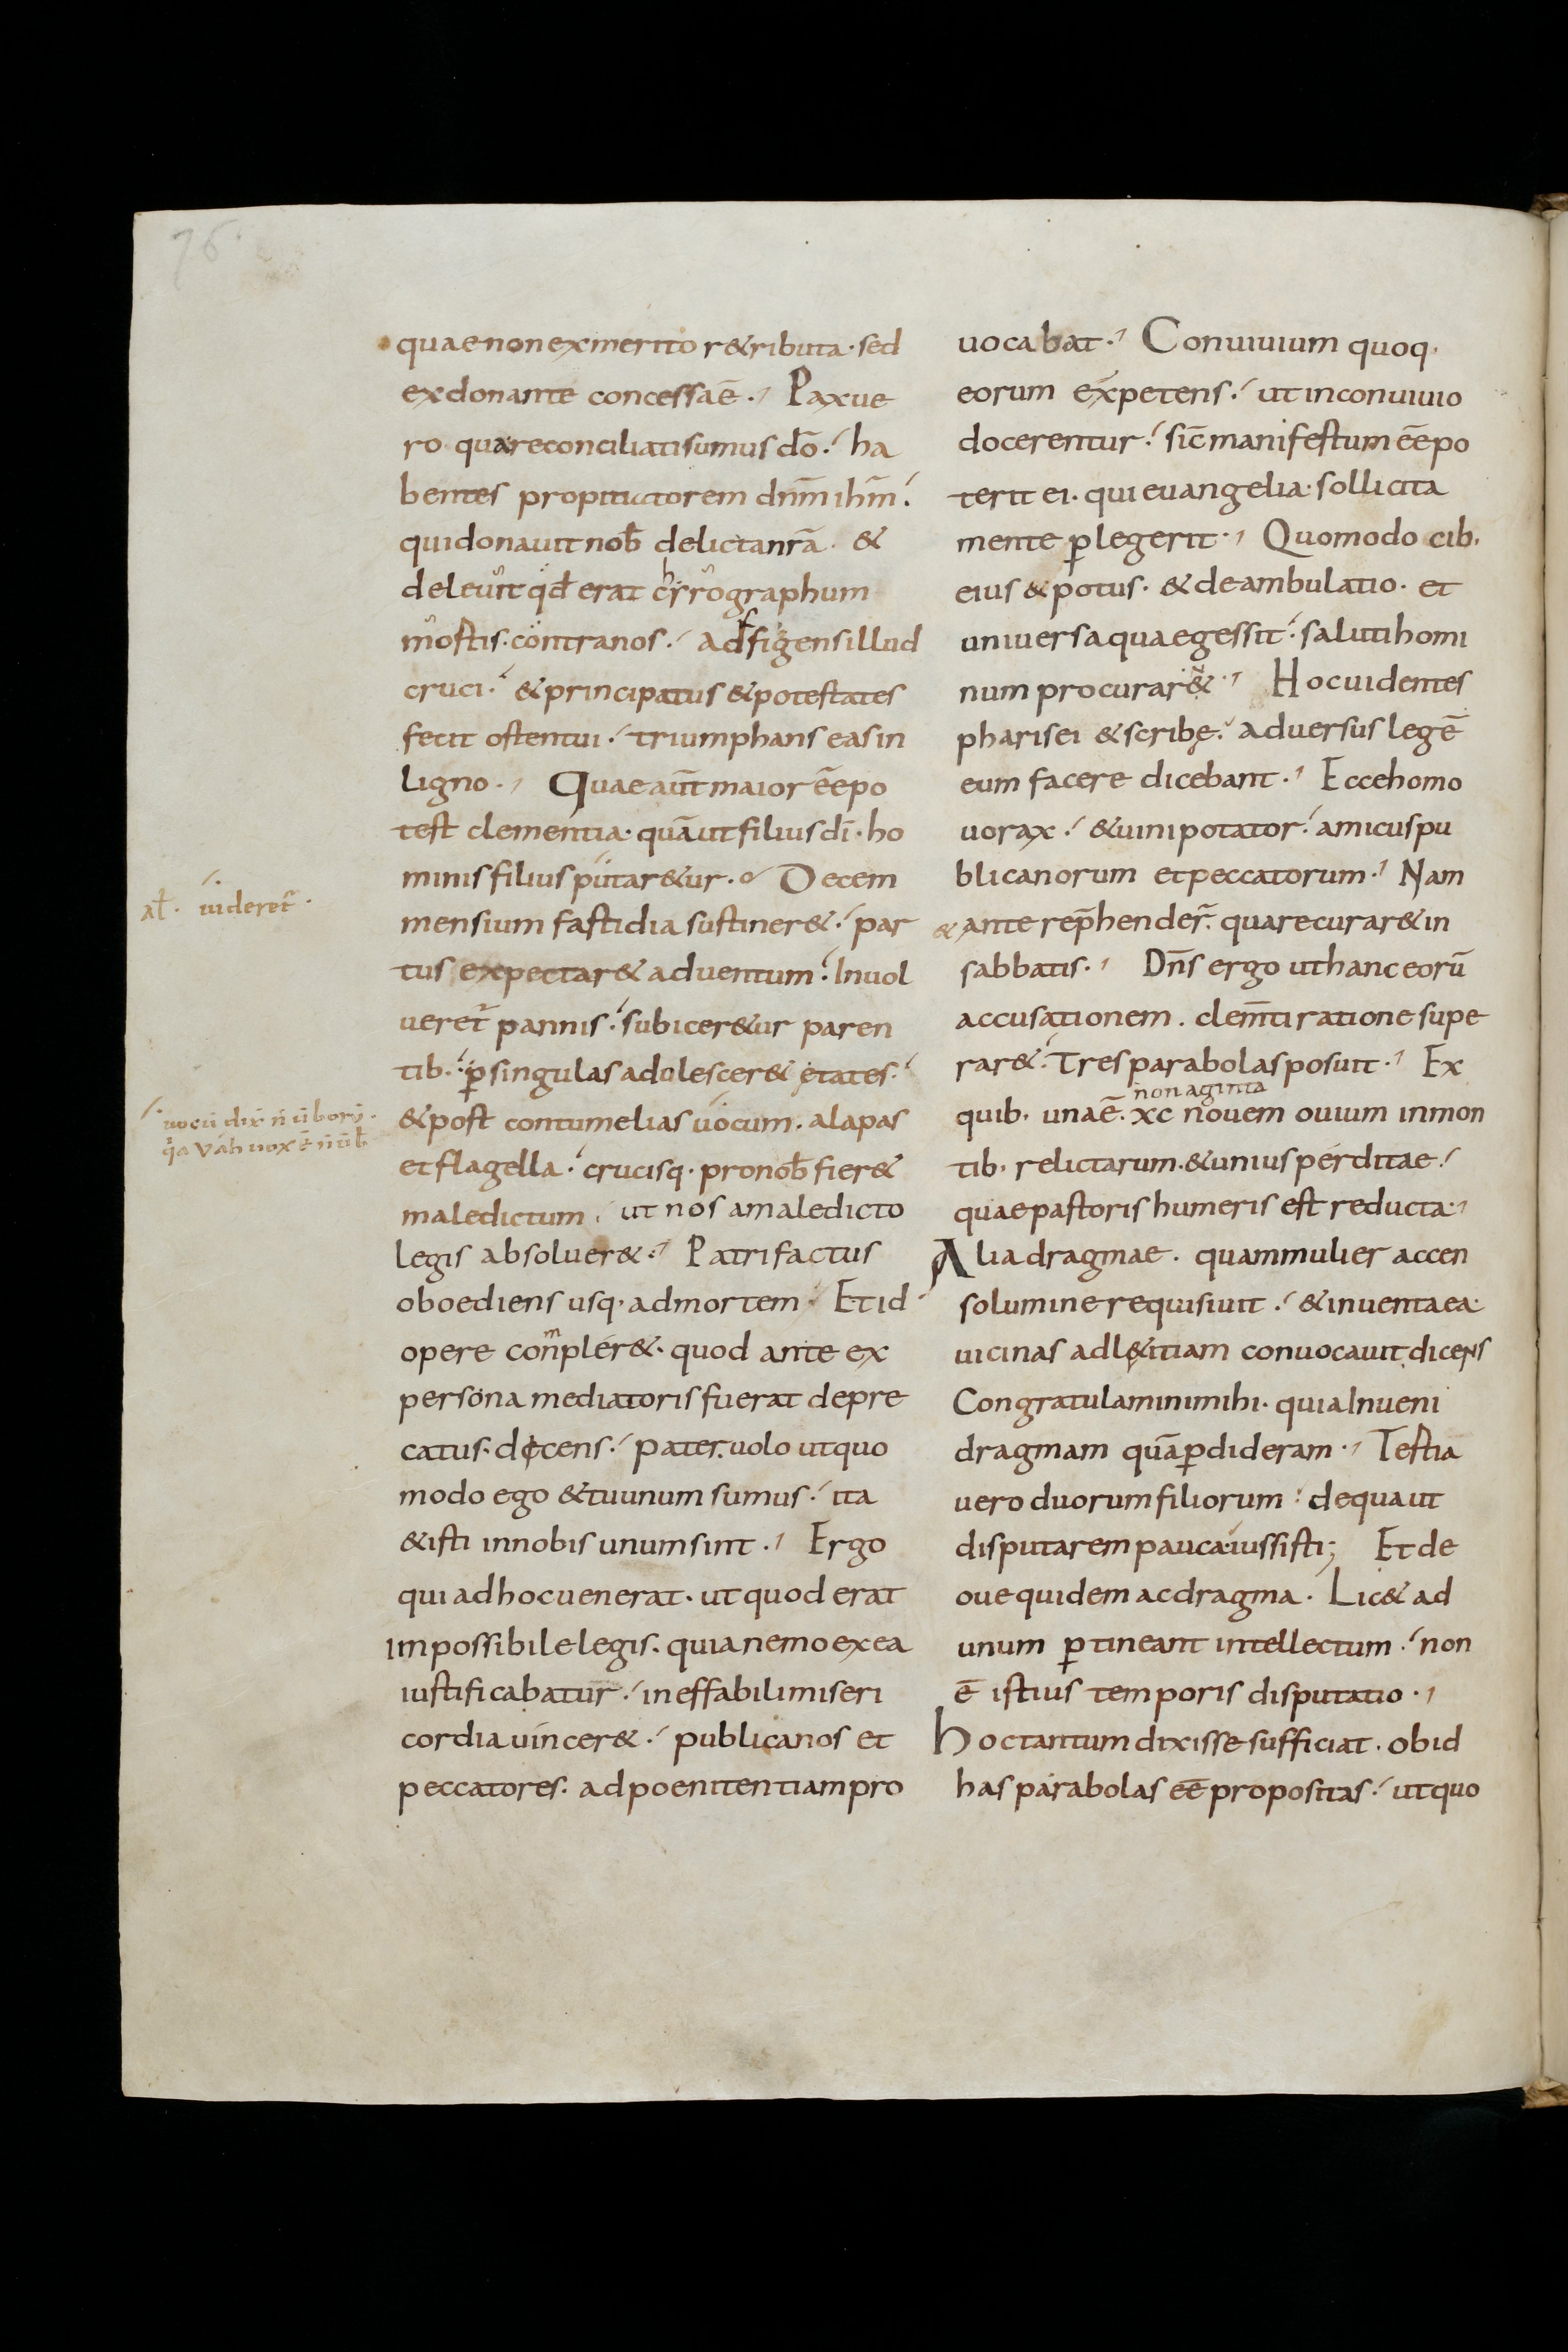 76.
quae non ex merito r&ributa · sed
ex donante concessa ē · Pax ue
ro qua reconciliati sumus dō · ha
bentes propitiatorem dnm̄ ihm̄
qui donauit nob̄ delicta nr̄a · &
deleuit qd̄ erat chyrographum
mostis · contra nos · adfigens illud
cruci · & principatus & potestates
fecit ostentui · triumphans eas in
ligno · Quae aut̄ maior ēē po
test clementia · quā ut filius dī · ho
minis filius putar&ur · Decem
mensium fastidia sustiner& · par
tus expectar& aduentum · Inuol
ueret̄ pannis · subicer&ur paren
tib · p̄ singulas adolescer& ętates ·
& post contumelias uocum · alapas
et flagella · crucisq · pro nob̄ fier&
maledictum · ut nos a maledicto
legis absoluer& · Patri factus
oboediens usq · ad mortem · Et id
opere conpler& · quod ante ex
persona mediatoris fuerat depre
catus · dicens · pater uolo ut quo
modo ego & tu unum sumus · ita
& isti in nobis unum sint · Ergo
qui ad hoc uenerat · ut quod erat
impossibile legis · quia nemo ex ea
iustificabatur · ineffabili miseri
cordia uincer& · publicanos et
peccatores · ad poenitentiam pro
al̄ · uideret̄ ·
uocū dix̄ n̄ ūborū ·
uocabat · Conuiuium quoq ·
eorum expetens · ut in conuiuio
docerentur · sic manifestum ēē po
terit ei · qui euangelia · sollicita
mente p̄legerit · Quomodo cib ·
eius & potus · & deambulatio · et
uniuersa quae gessit · saluti homi
num procurar& · Hoc uidentes
pharisei & scribę · aduersus legē
eum facere dicebant · Ecce homo
uorax · & uini potator · amicus pu
blicanorum et peccatorum · Nam
& ante rep̄hender̄ · quare curar& in
sabbatis · Dn̄s ergo ut hanc eorū
accusationem · clem̄ti ratione supe
rar& · Tres parabolas posuit · Ex
nonaginta
quib · una ē · xc nouem ouium in mon
tib · relictarum · & unius perditae ·
quae pastoris humeris est reducta ·
Alia dragmae · quam mulier accen
so lumine requisiuit · & inuenta ea ·
uicinas ad lę&itiam conuocauit dicens
Congratulamini mihi · quia Inueni
dragmam quā p̄dideram · Testia
uero duorum filiorum · de qua ut
disputarem pauca iussisti; Et de
oue quidem ac dragma · Lic& ad
unum p̄tineant intellectum · non
ē istius temporis disputatio ·
hoc tantum dixisse sufficiat · ob id
has parabolas ēē propositas · ut quo